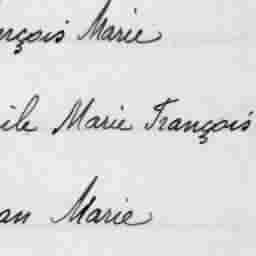 rçois Marie
ile Marie François
an Marie